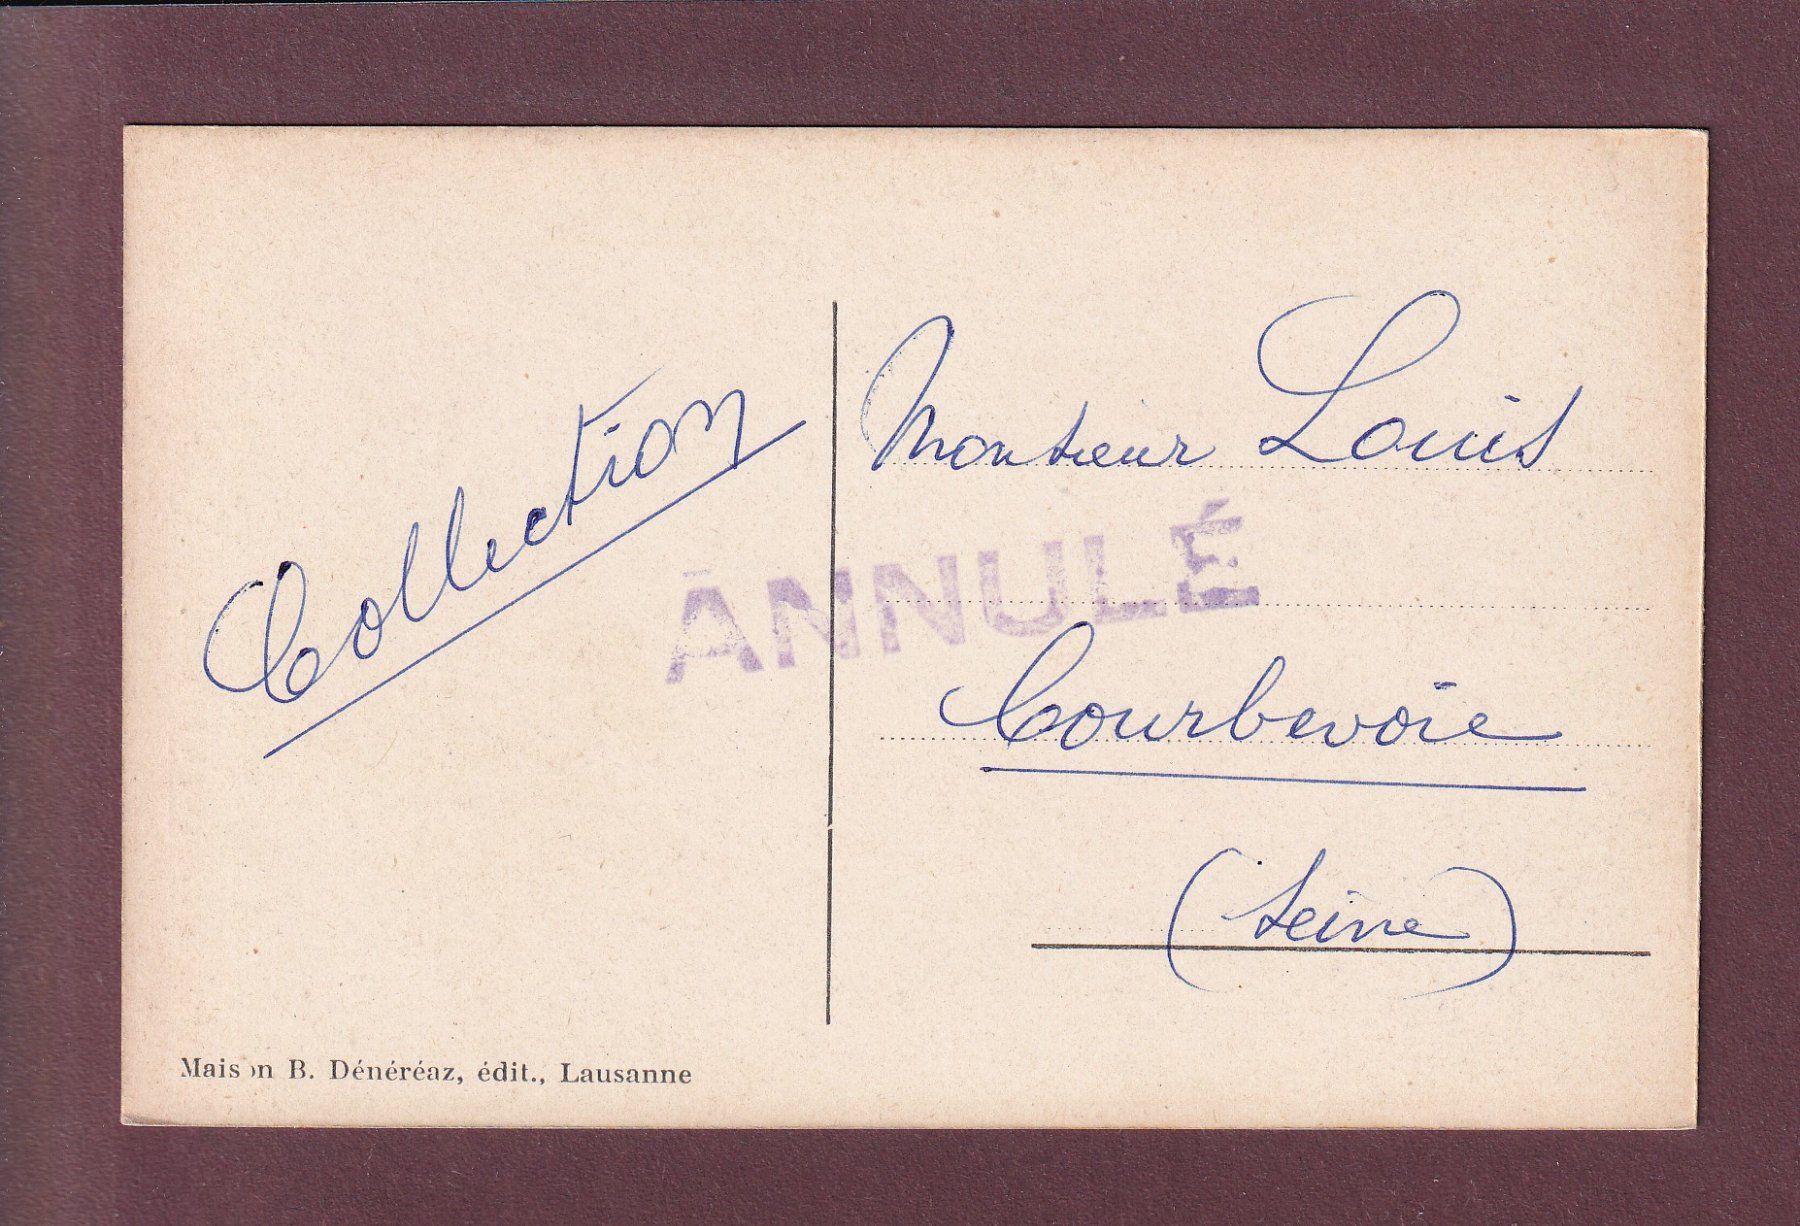 Collection
Monsieur Louis
ANNULÉ
Courbevoie
(Seine)
Maison B. Dénéréaz, édit., Lausanne